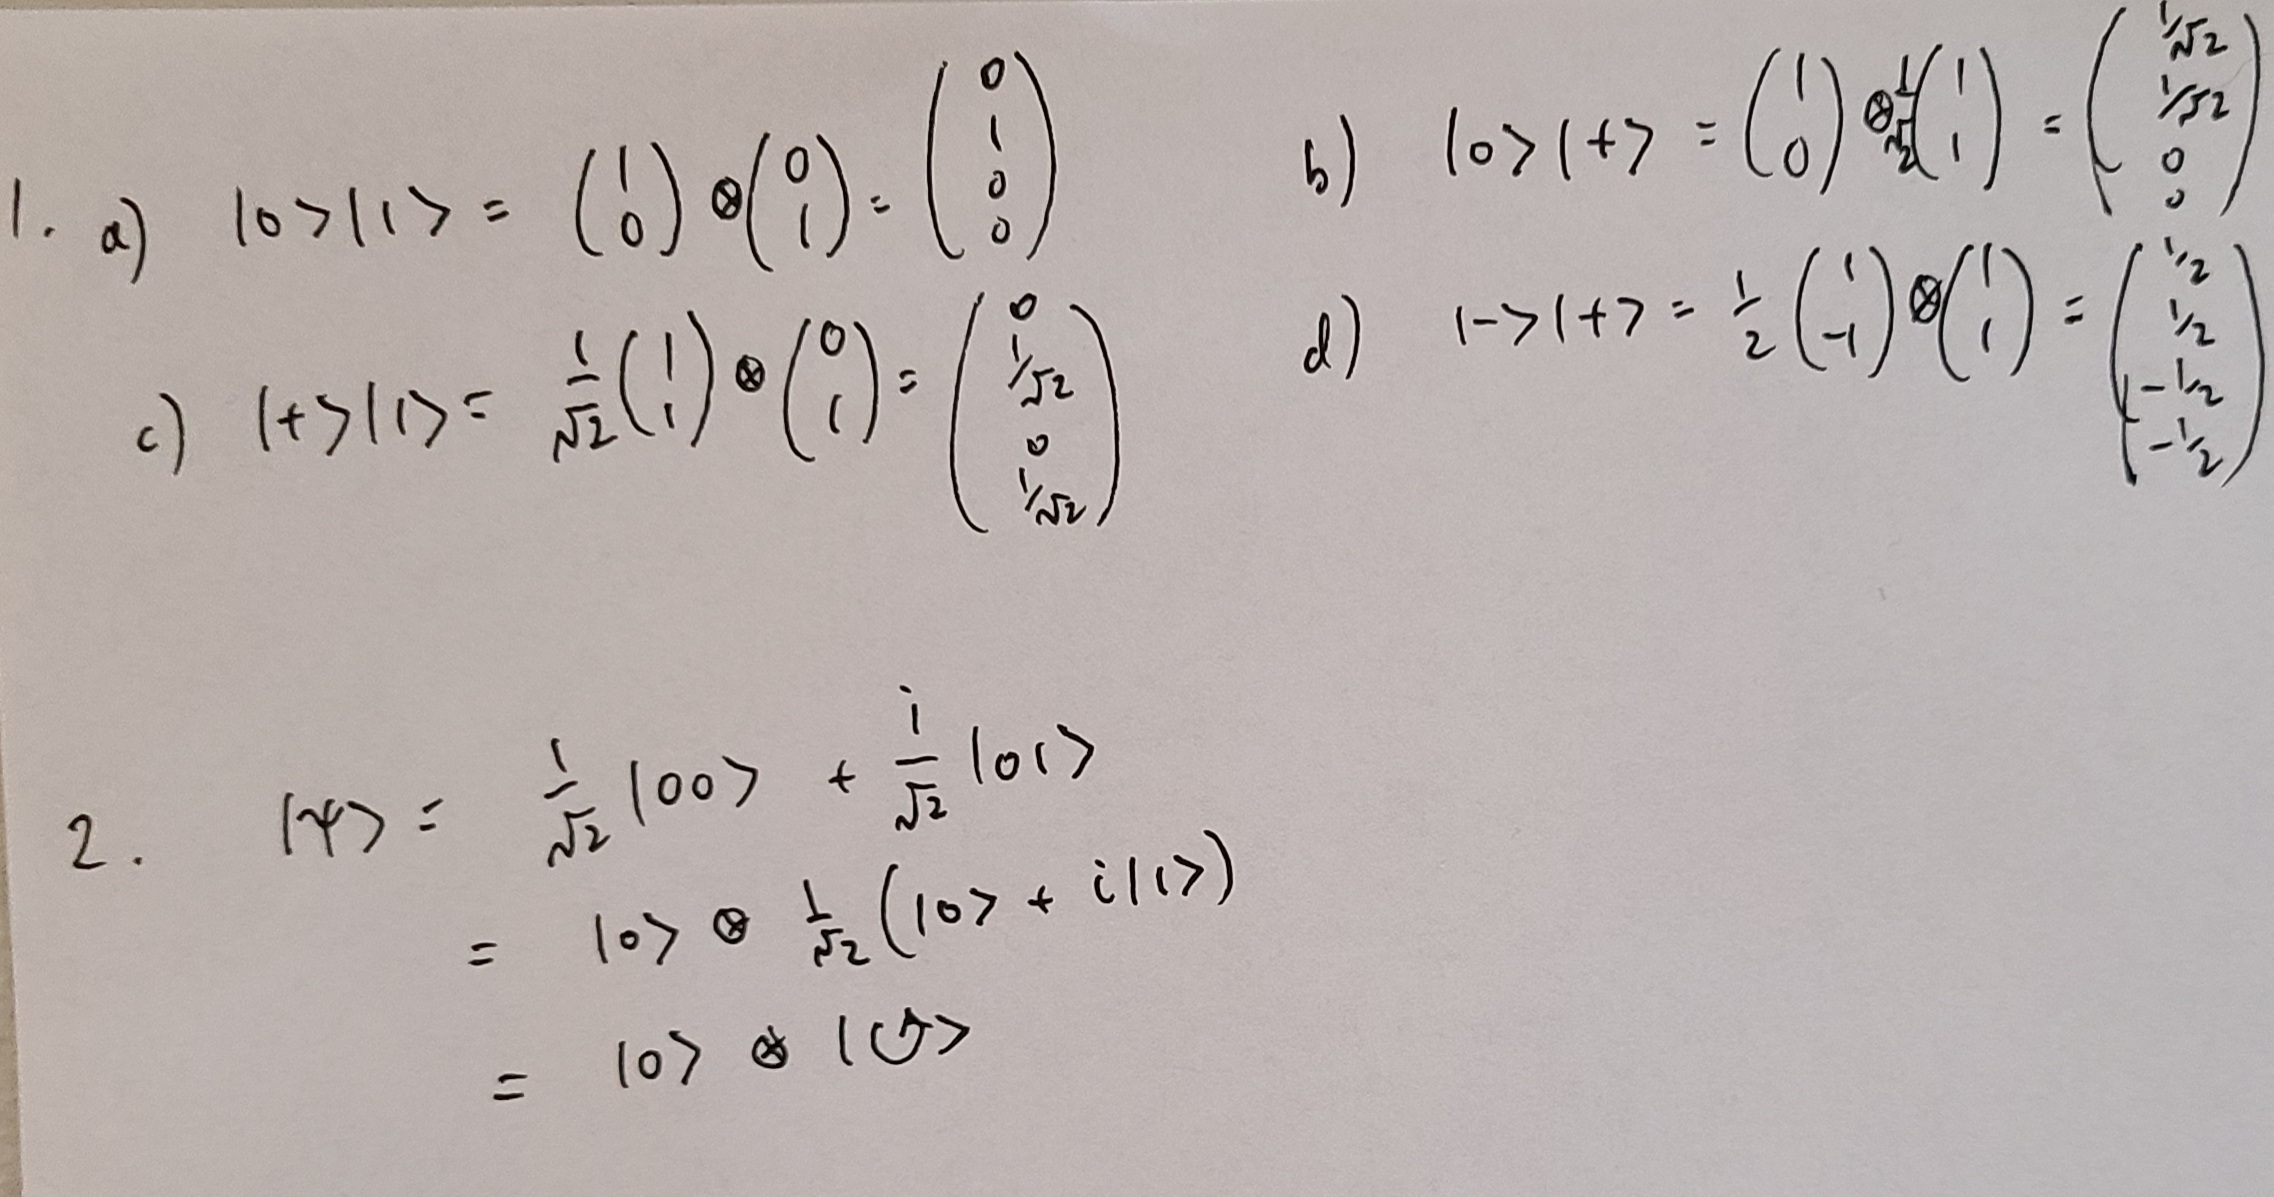 1. a) |0>|1> = (1 0) ⊗ (0 1) = (0 1 0 0)
b) |0>|+> = (1 0) ⊗ 1/√2 (1 1) = (1/√2 1/√2 0 0)
c) |+>|1> = 1/√2 (1 1) ⊗ (0 1) = (0 1/√2 0 1/√2)
d) |->|+> = 1/2 (1 -1) ⊗ (1 1) = (1/2 1/2 -1/2 -1/2)
2. |ψ> = 1/√2 |00> + i/√2 |01>
= |0> ⊗ 1/√2 (|0> + i|1>)
= |0> ⊗ |↺>